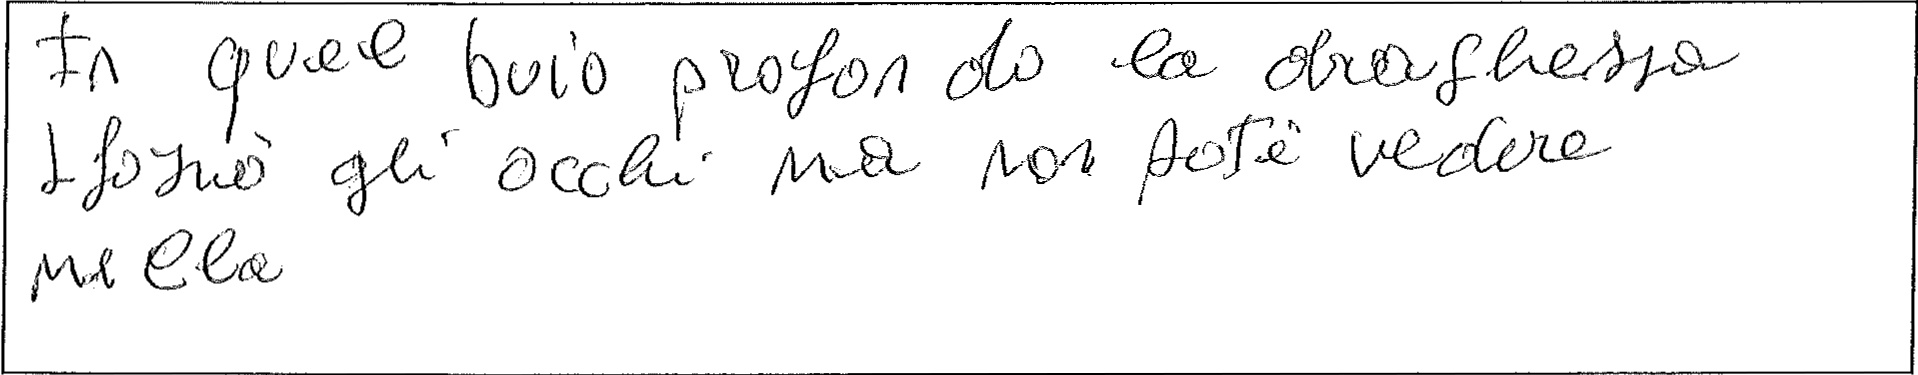 In quel buio profondo la draghessa
sforzò gli occhi ma non potè vedere
nella